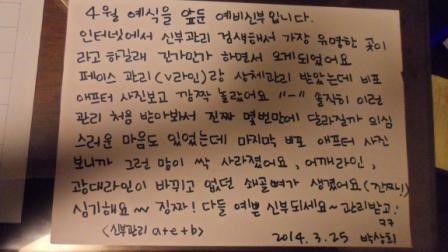 4월 예식을 앞둔 예비신부입니다.
인터넷에서 신부관리 검색해서 가장 유명한 곳이
라고 하길래 긴가민가 하면서 오게되었어요
페이스 관리(V라인)랑 상체관리 받았는데 비포
애프터 사진보고 깜짝 놀랐어요 "-" 솔직히 이런
관리 처음 받아봐서 진짜 몇번만에 달라질까 의심
스러운 마음도 있었는데 마지막 비포 애프터 사진
보니까 그런 맘이 싹 사라졌어요, 어깨라인,
광대라인이 바뀌고 없던 쇄골뼈가 생겼어요(간짜!)
신기해요~ 진짜! 다들 예쁜 신부되세요~ 관리받고!
ㅋㅋ
<신부관리 a+e+b> 2014. 3. 25 박상희